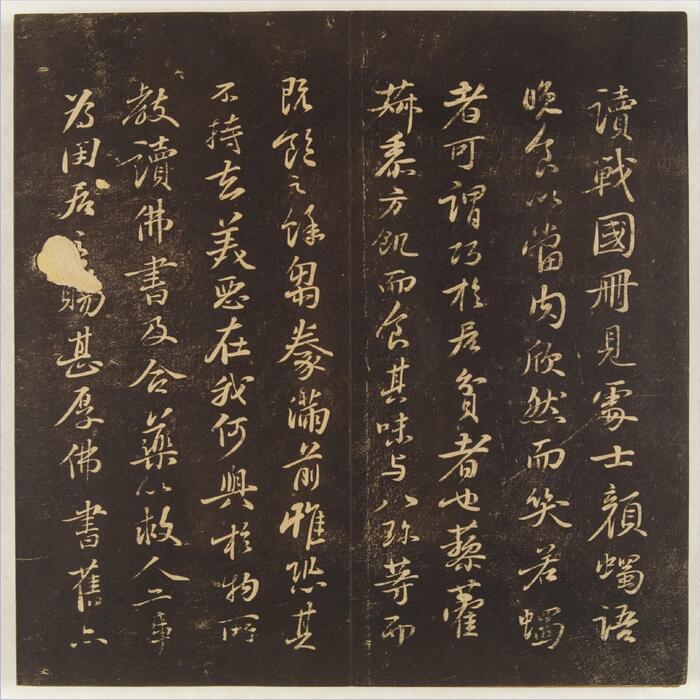 讀戰國冊見處士顏蠋語
晚食以當肉欣然而笑若蠋
者可謂巧於居貧者也藜藿
菽黍方飢而食其味与八珍等而
既飽之餘芻豢滿前惟恐其
不持去美惡在我何與於物所
教讀佛書及合藥以救人二事
為閑居賜甚厚佛書舊亦